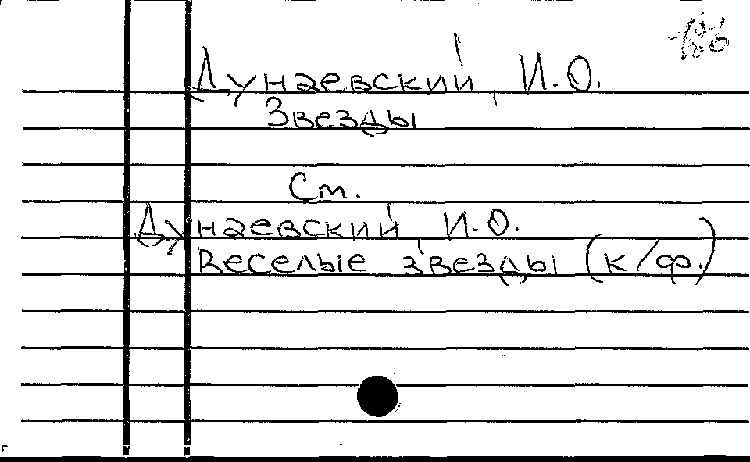 Дунаевский, И.О.
Звезды
См.
Дунаевский И.О.
Веселые звезды (к/ф.)